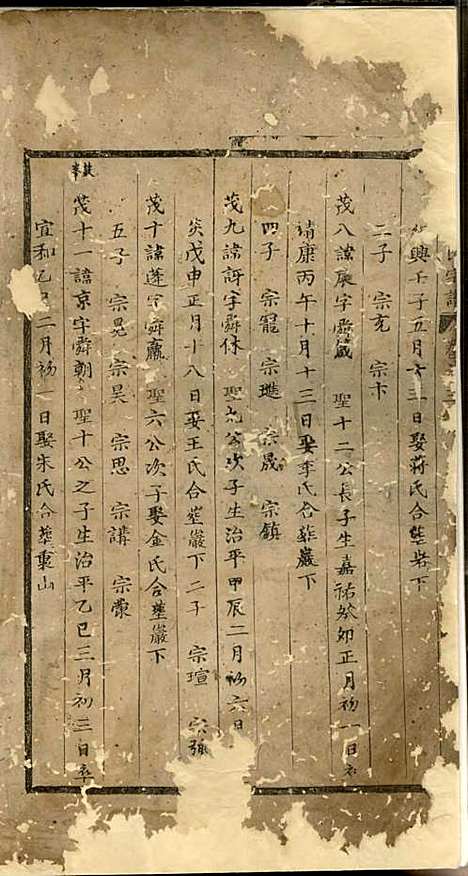 興壬子五月十三日娶蔣氏合塟岩下
二子 宗充 宗卞
茂八諱庚字舜歲 聖十二公長子生嘉祐癸卯正月初一日卒
靖康丙午十月十三日娶李氏合塟巖下
四子 宗寵 宗璡 宗晟 宗鎮
茂九諱訝字舜休 聖九公次子生治平甲辰二月初六日
炎戊申正月十八日娶王氏合塟巖下二子 宗瑄 宗弼
茂十諱蓬字舜贏 聖六公次子娶金氏合塟巖下
五子 宗晃 宗昊 宗思 宗講 宗蒙
茂十一諱京字舜朝 聖十公之子生治平乙巳三月初三日卒
宣和乙巳二月初一日娶朱氏合塟東山